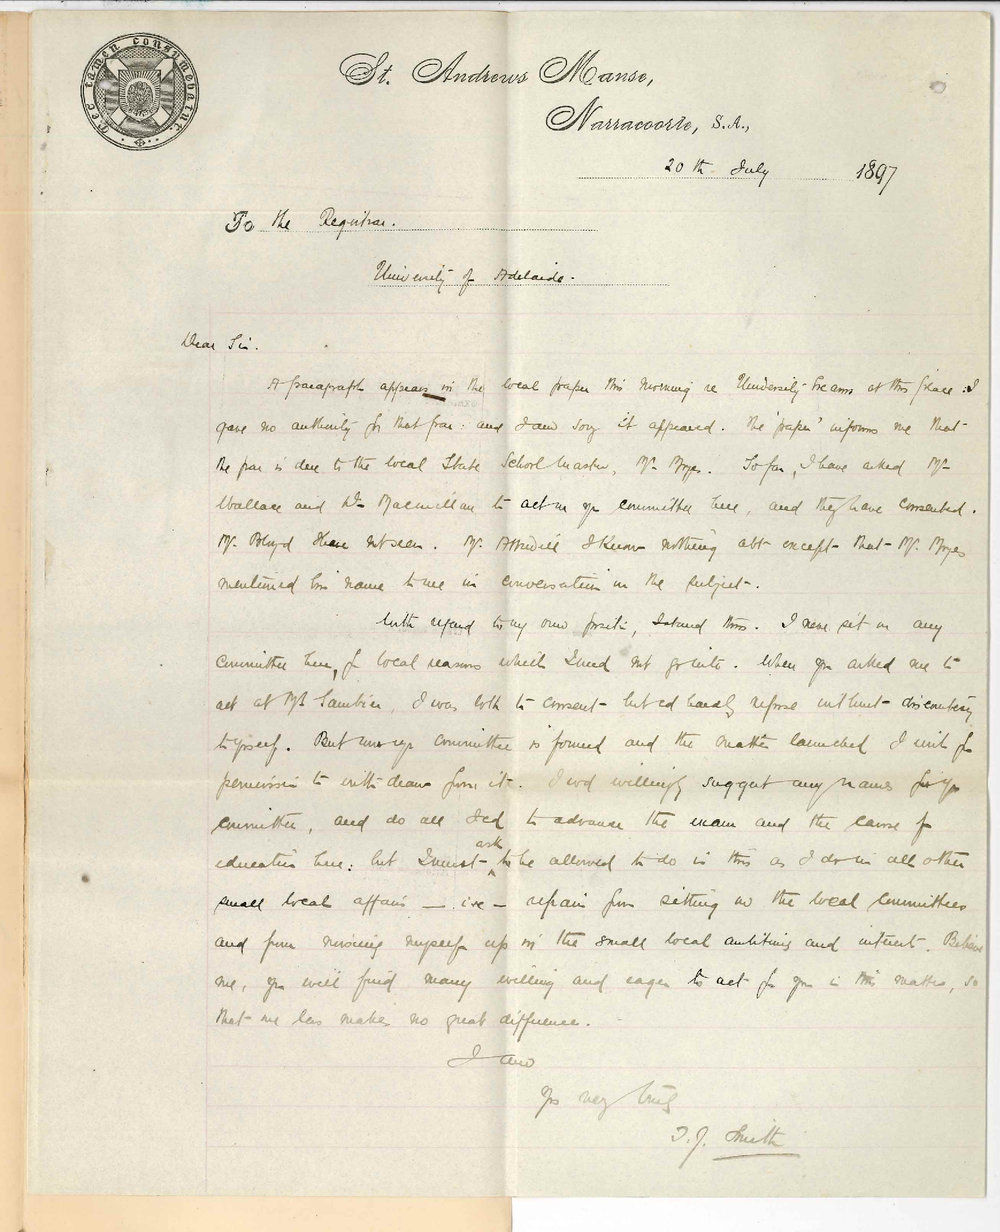 Nec tamen consumebatur
St. Andrews Manse,
Narracoorte, S.A.,
20th July 1897
To the Registrar.
University of Adelaide.
Dear Sir.
A paragraph appears in the local paper this morning re University Exams at this place. I
gave no authority for that par. and I am sorry it appeared. The 'paper' informs me that
the par is due to the local State School Master, Mr. So far, I have asked Mr
Wallace and Dr Macmillan to act on yr committee here, and they have consented.
Mr. I have not seen. Mr. Attwill I know nothing abt except that Mr.
mentioned his name to me in conversation on the subject.
With regard to my own position, I stand thus. I never sit on any
committee here, for local reasons which I need not go into. When you asked me to
act at Mt Gambier, I was loth to consent but cd hardly refuse without discourtesy
to yrself. But once yr committee is formed and the matter launched I wish for
permission to withdraw from it. I wod willingly suggest any names for yr
committee, and do all I cd to advance the exam and the cause of
education here: but I must ask to be allowed to do in this as I do in all other
small local affairs — i.e — refrain from sitting on the local committees
and from mixing myself up in the small local and interest. Believe
me, you will find many willing and eager to act for you in this matter, so
that one less makes no great difference.
I am
Yrs very truly
D. J. Smith